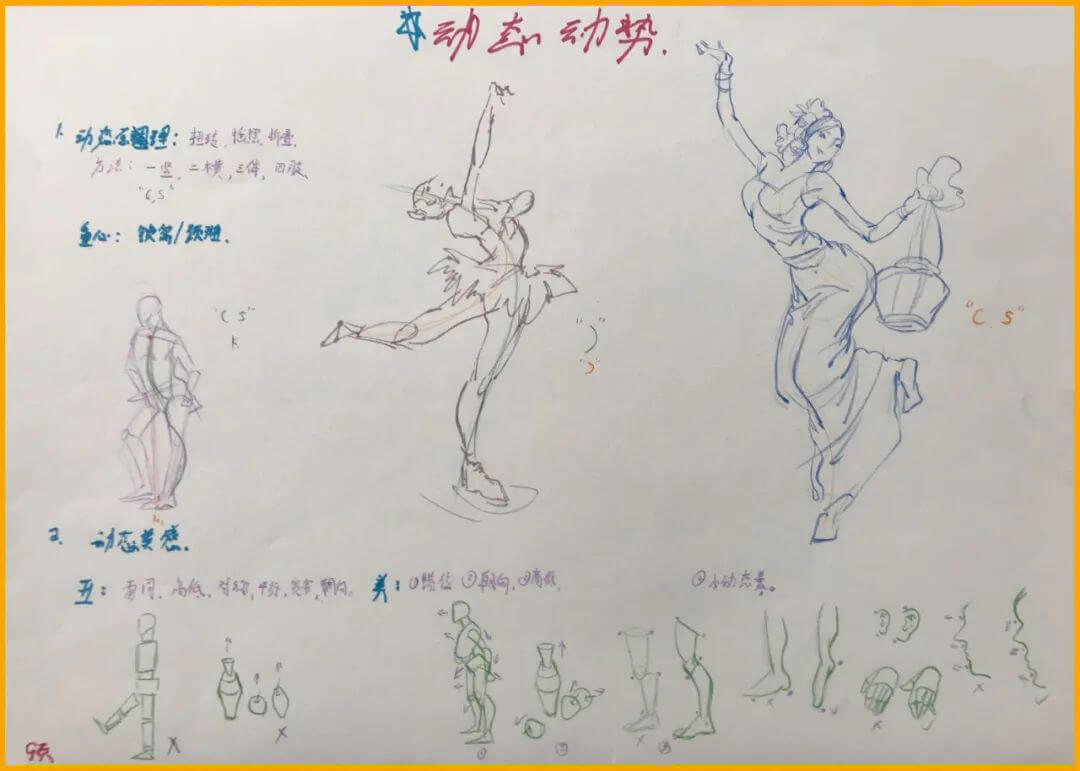 动态 动势.
1. 动态原理：扭转, 摇摆, 折叠.
方法：一竖, 二横, 三体, 四肢.
"C,S"
重心：
"C S"
k
")"
")"
"C. S"
2. 动态美感.
丑：雷同, 高低, 对称, 平行, 朝向。
美：①错位 ②朝向, ③高低.
④小动态多。
x
x
①
②
x
③
x
x
x